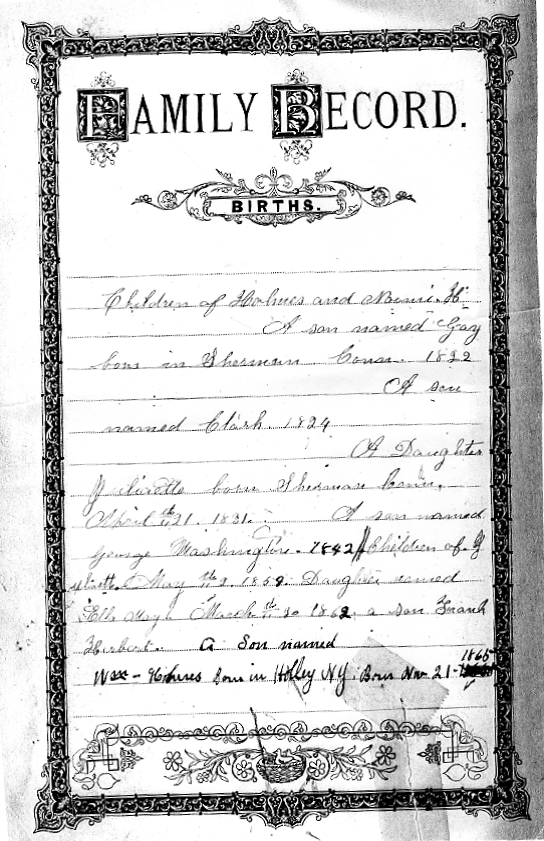 FAMILY RECORD.
BIRTHS.
Children of Holmes and Noomi. H-
A son named Gay
born in Sherman Conn. 1822
A son
named Clark. 1824
A Daughter
Juliaette born Sherman Conn.
April th 21. 1831. A son named
George Washington. 1842 Children of J
uliaett. May th 9. 1859. Daughter named
Ella March th 30 1862. a son Frank
Herbert. A Son named
Holmes Born in Holley NY. Born Nov 21- 1865